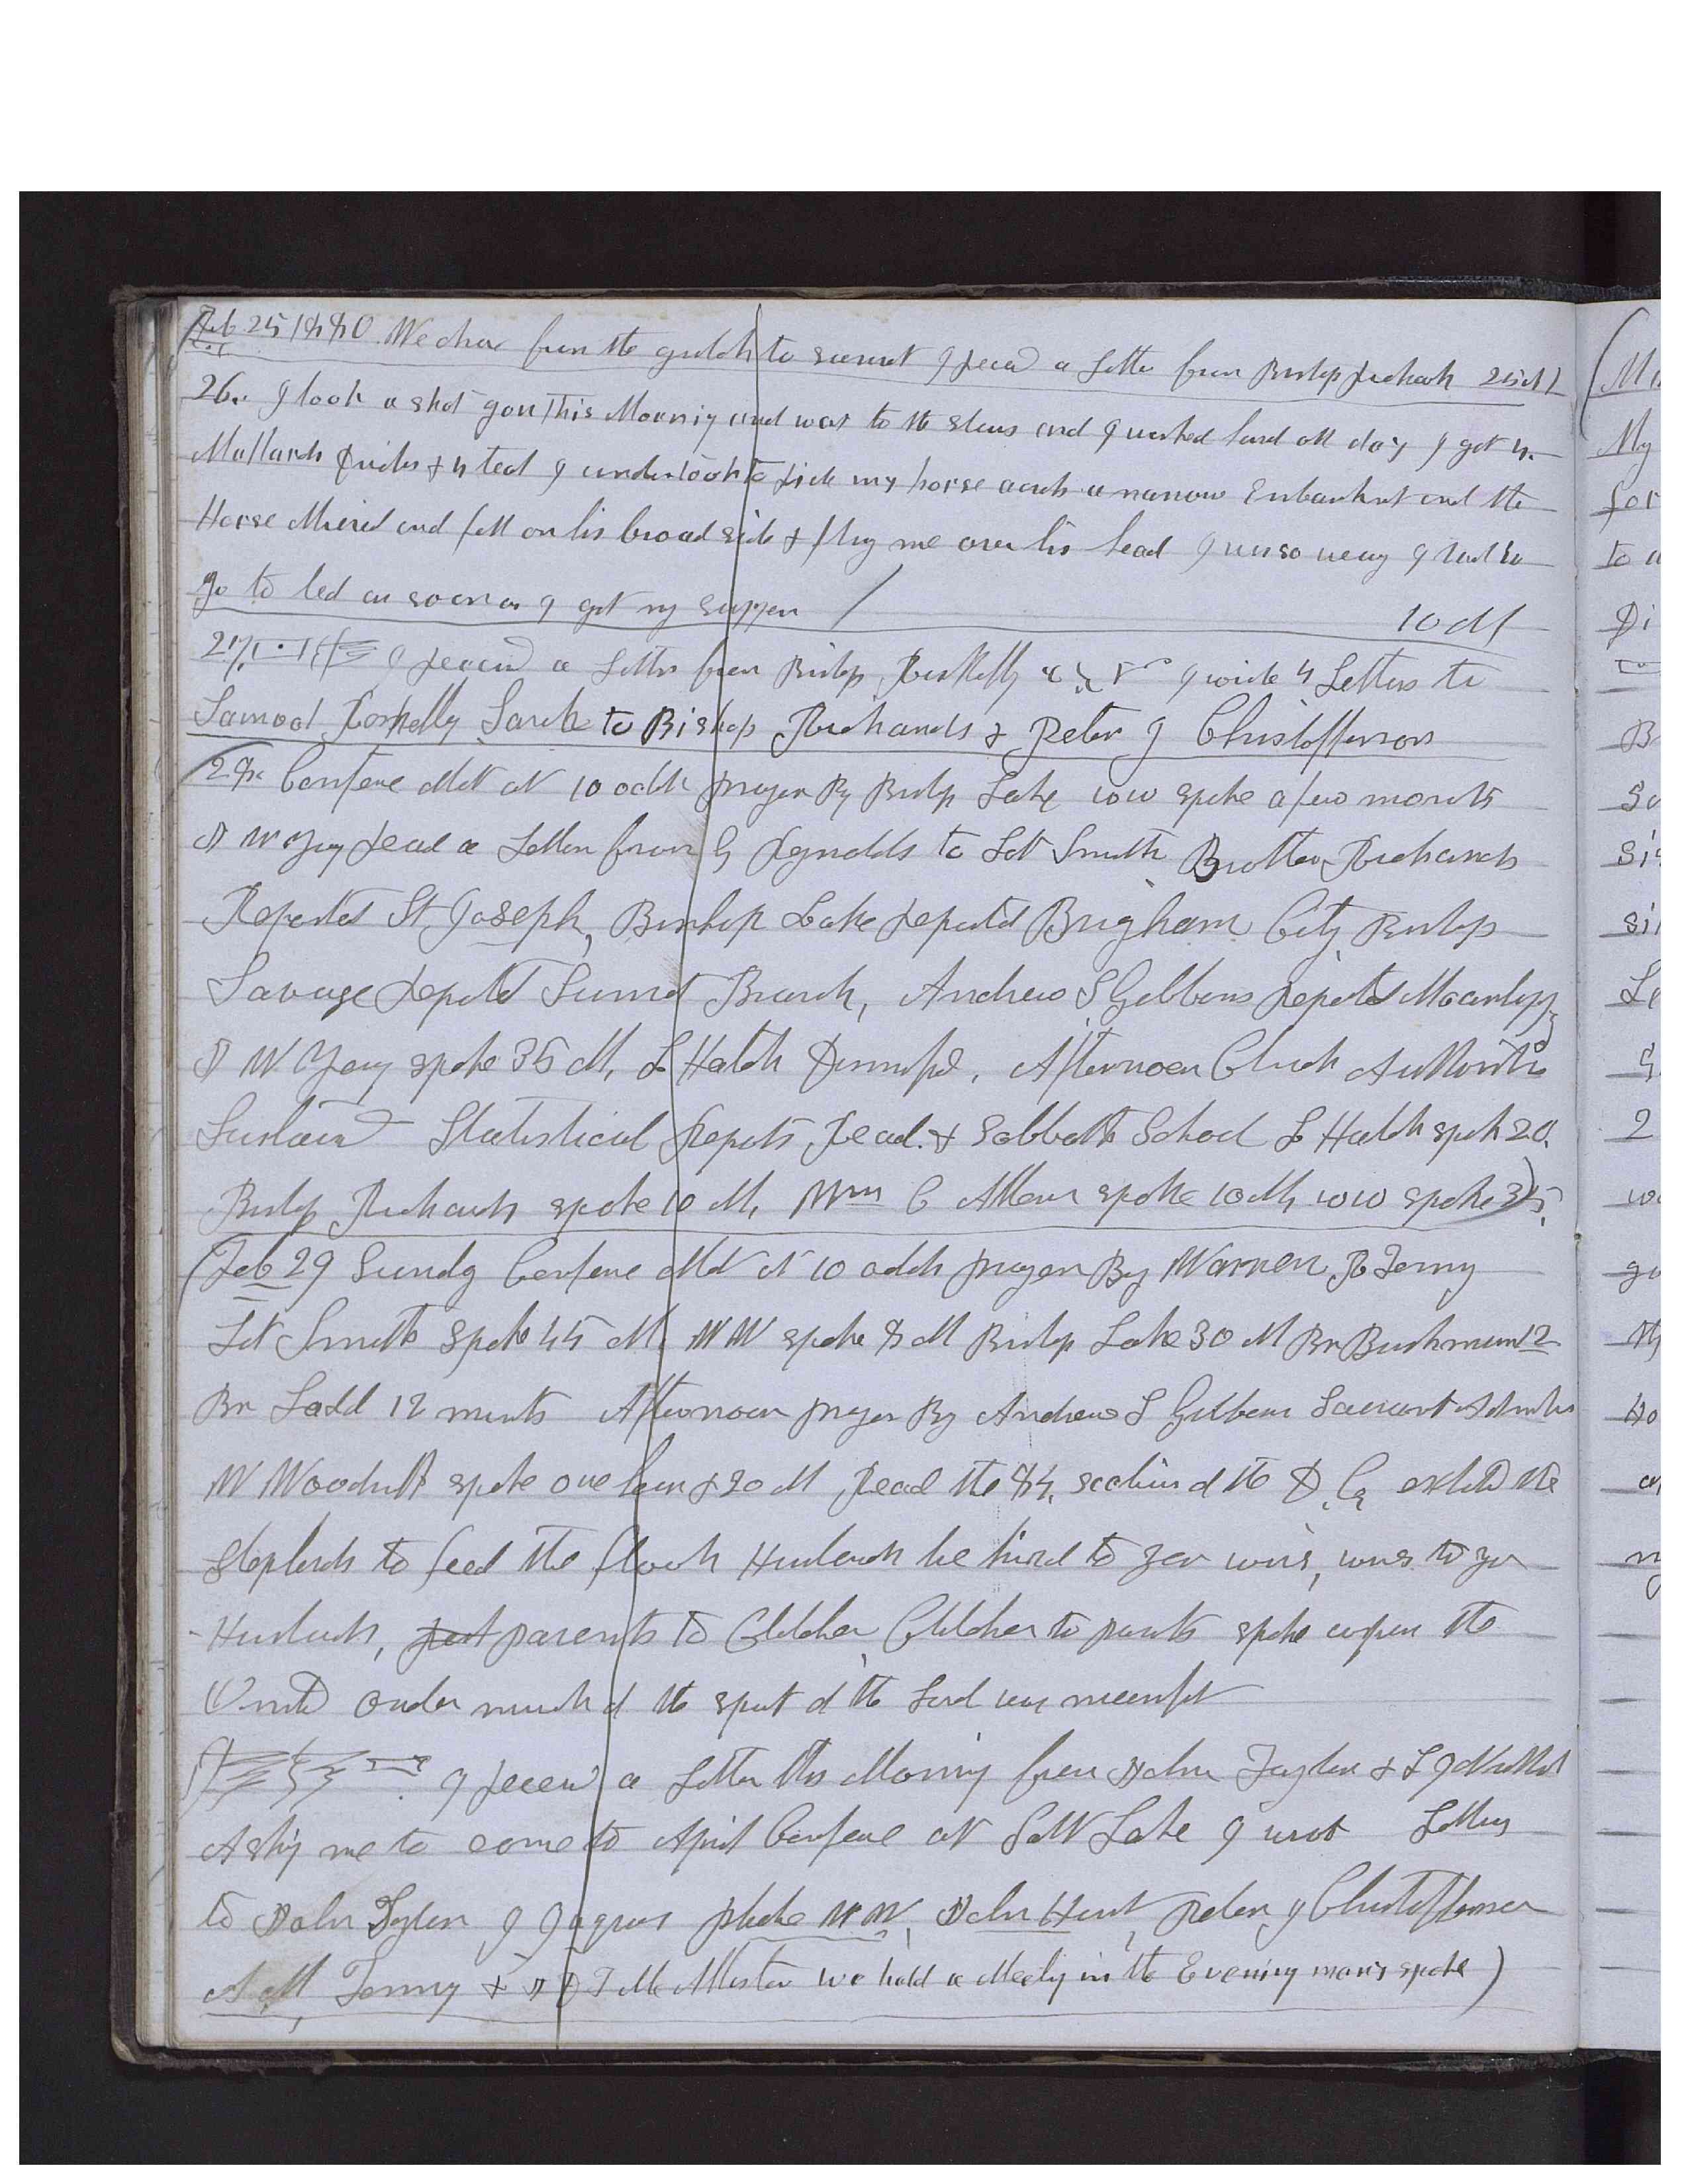 Feb 25 1880 We drove from the gulch to sunset I receivd a letter from Bishop Richards 25 M
26. I took a shot gun this Morning and went to the slews and I worked hard all day I got 4
Mallards Ducks & 4 teal I undertook to ride my horse across a narrow Enbankmet and the
Horse Mired and fell on his broad side & flung me over his head I was so weary I had to
go to bed as soon as I got my supper / 10 M
27. I receivd a Letter from Bishop I wrote 4 Letters to
Samuel Roskelly Sarah to Bishop Richards & Peter J Christofferson
28. Confere Met at 10 oclk prayer By Bishop Lake WW spoke a few moments
read a Letter from G Reynolds to Lot Smith Brother Richards
Reported St Joseph, Bishop Lake reported Brigham City Bishop
Savage reported Sunset Branch, Andrew S Gibbons reported Moankopy
spoke 35 M, L Hatch Dimisd. Afternoon Church Authorities
Sustaind Statistical reports read & Sabbath School L Hatch spoke 20.
Bishop Richards spoke 10 M, Wm C Allen spoke 10 M, WW spoke 35.
(Feb 29 Sundy Confere Met at 10 oclk prayer By Warren R Tenny
Lot Smith spoke 45 M. WW spoke 8 M Bishop Lake 30 M Br Bushman 12
Br Ladd 12 minuts Afternoon prayer By Andrew S Gibbons Sacrament
W Woodruff spoke one hour & 20 M read the 84. section of the D. C. exhtd the
Shepherds to feed the flock Husbands be kind to yer wives, wives to yer
Husbands, parents to Children Children to parents spoke upon the
United order much of the spirit of the Lord was manifest
I receivd a letter this Morning from John Taylor & L J Nuttal
Asking me to come to April Confere at Salt Lake I wrote Letters
to John Taylor J Jaques Phebe W W, John Hunt, Peter J Christofferson
A M, Tenny & we held a Meeting in the Evening many spoke)
(
My
for
to
Di
Br